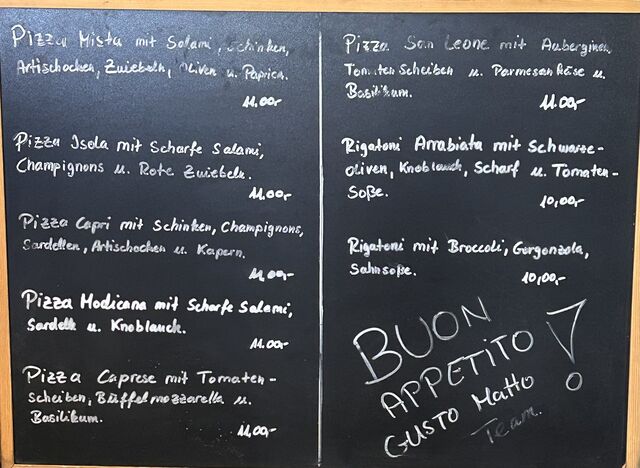 Pizza Mista mit Salami, Schinken,
Artischocken, Zwiebeln, Oliven u. Paprica.
11.00,-
Pizza Isola mit Scharfe Salami,
Champignons u. Rote Zwiebeln.
11.00,-
Pizza Capri mit Schinken, Champignons,
Sardellen, Artischocken u. Kapern.
11,00,-
Pizza Modicana mit Scharfe Salami,
Sardelle u. Knoblauch.
11.00,-
Pizza Caprese mit Tomaten-
scheiben, Büffelmozzarella u.
Basilikum.
11,00,-
Pizza San Leone mit Auberginen,
Tomaten Scheiben u. Parmesan Käse u.
Basilikum.
11.00,-
Rigatoni Arrabiata mit Schwarze-
oliven, Knoblauch, Scharf u. Tomaten-
Soße.
10,00,-
Rigatoni mit Broccoli, Gorgonzola,
Sahnsoße.
10,00,-
BUON
APPETITO !
GUSTO Matto
Team.